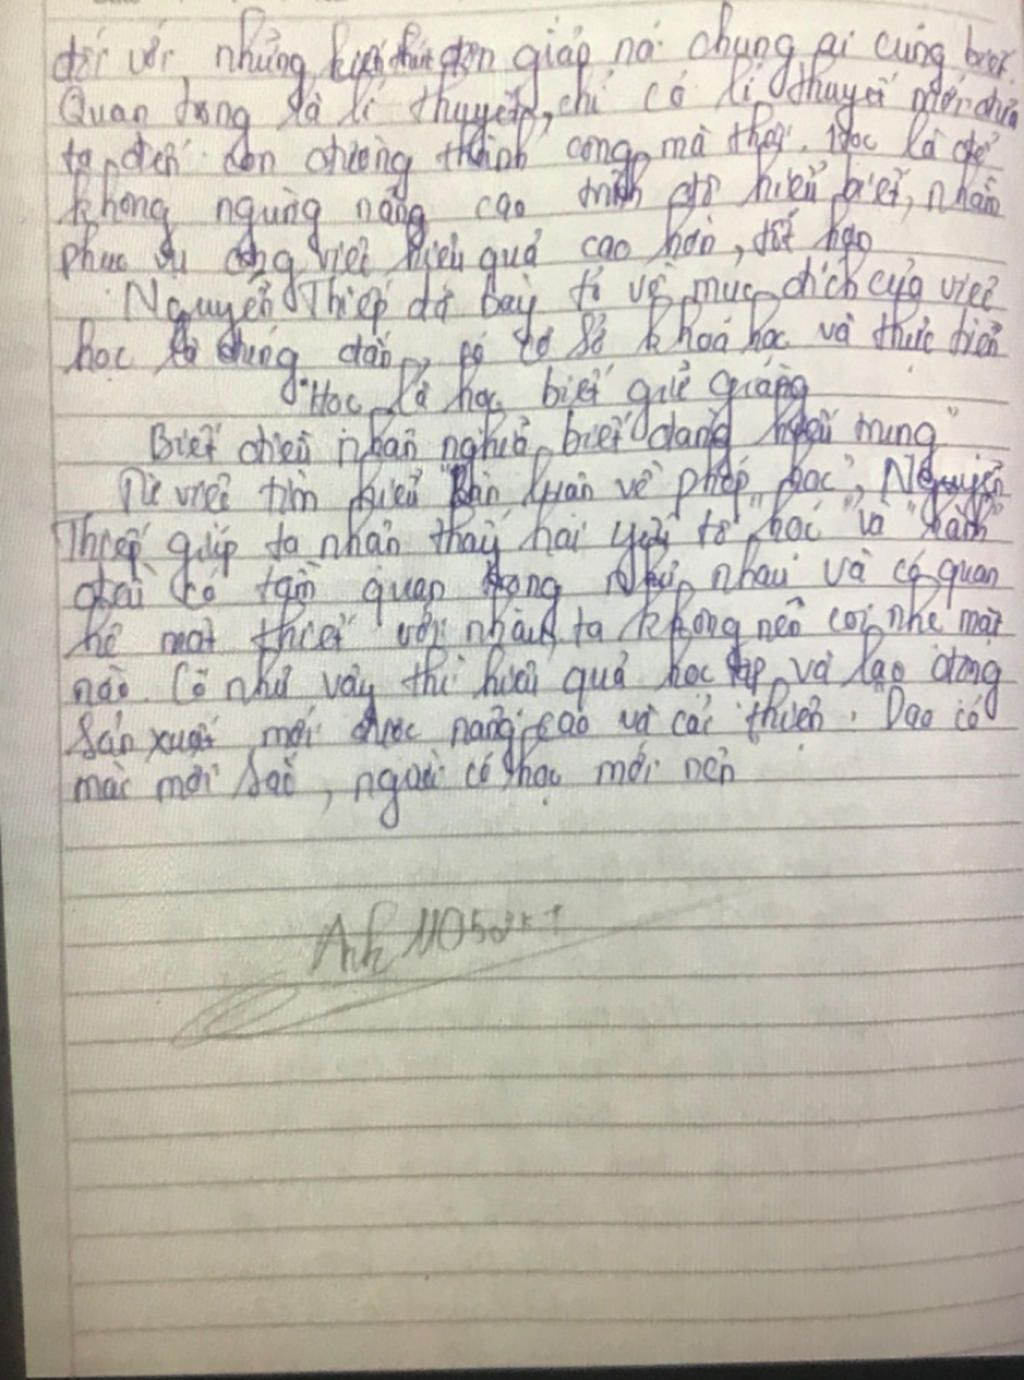 đối với những kiến thức đơn giản nói chung ai cũng biết.
Quan trọng là lí thuyết, chỉ có lí thuyết mới đưa
ta đến con đường thành công mà thôi. Học là để
không ngừng nâng cao trình độ hiểu biết, nhằm
phục vụ công việc hiệu quả cao hơn, tốt hơn
Nguyễn Thiếp đã bày tỏ về mục đích của việc
học là đúng đắn, có cơ sở khoa học và thực tiễn
"Học là học biết giữ giàng
Biết điều nhân nghĩa biết đàng hiếu trung"
Từ việc tìm hiểu "Bàn luận về phép học", Nguyễn
Thiếp giúp ta nhận thấy hai yếu tố "học" và "hành"
đều có tầm quan trọng như nhau và có quan
hệ mật thiết với nhau, ta không nên coi nhẹ mặt
nào. Có như vậy thì hiệu quả học tập và lao động
sản xuất mới được nâng cao và cải thiện. Dao có
mài mới sắc, người có học mới nên
Anh